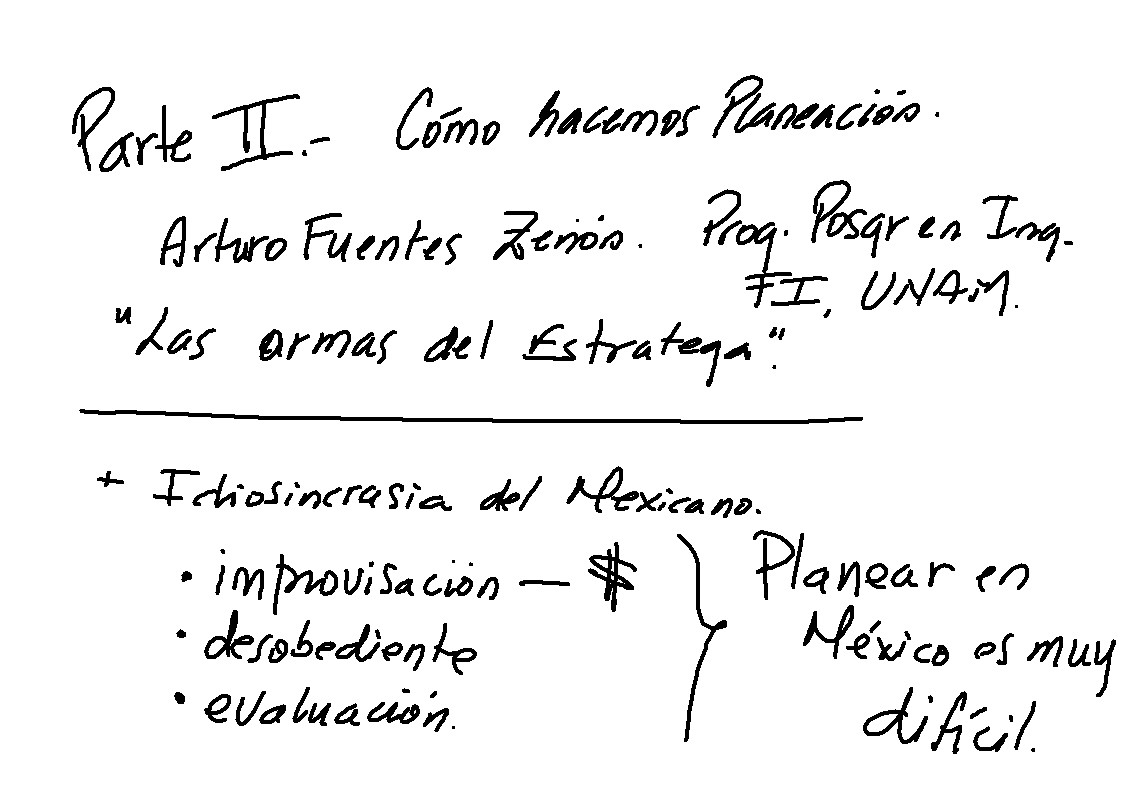 Parte II.- Cómo hacemos Planeación.
Arturo Fuentes Zenón. Prog. Posgr en Ing.
FI, UNAM.
"Las armas del Estratega".
+ Idiosincrasia del Mexicano.
• improvisación — $
• desobediente
• evaluación.
} Planear en
México es muy
difícil.